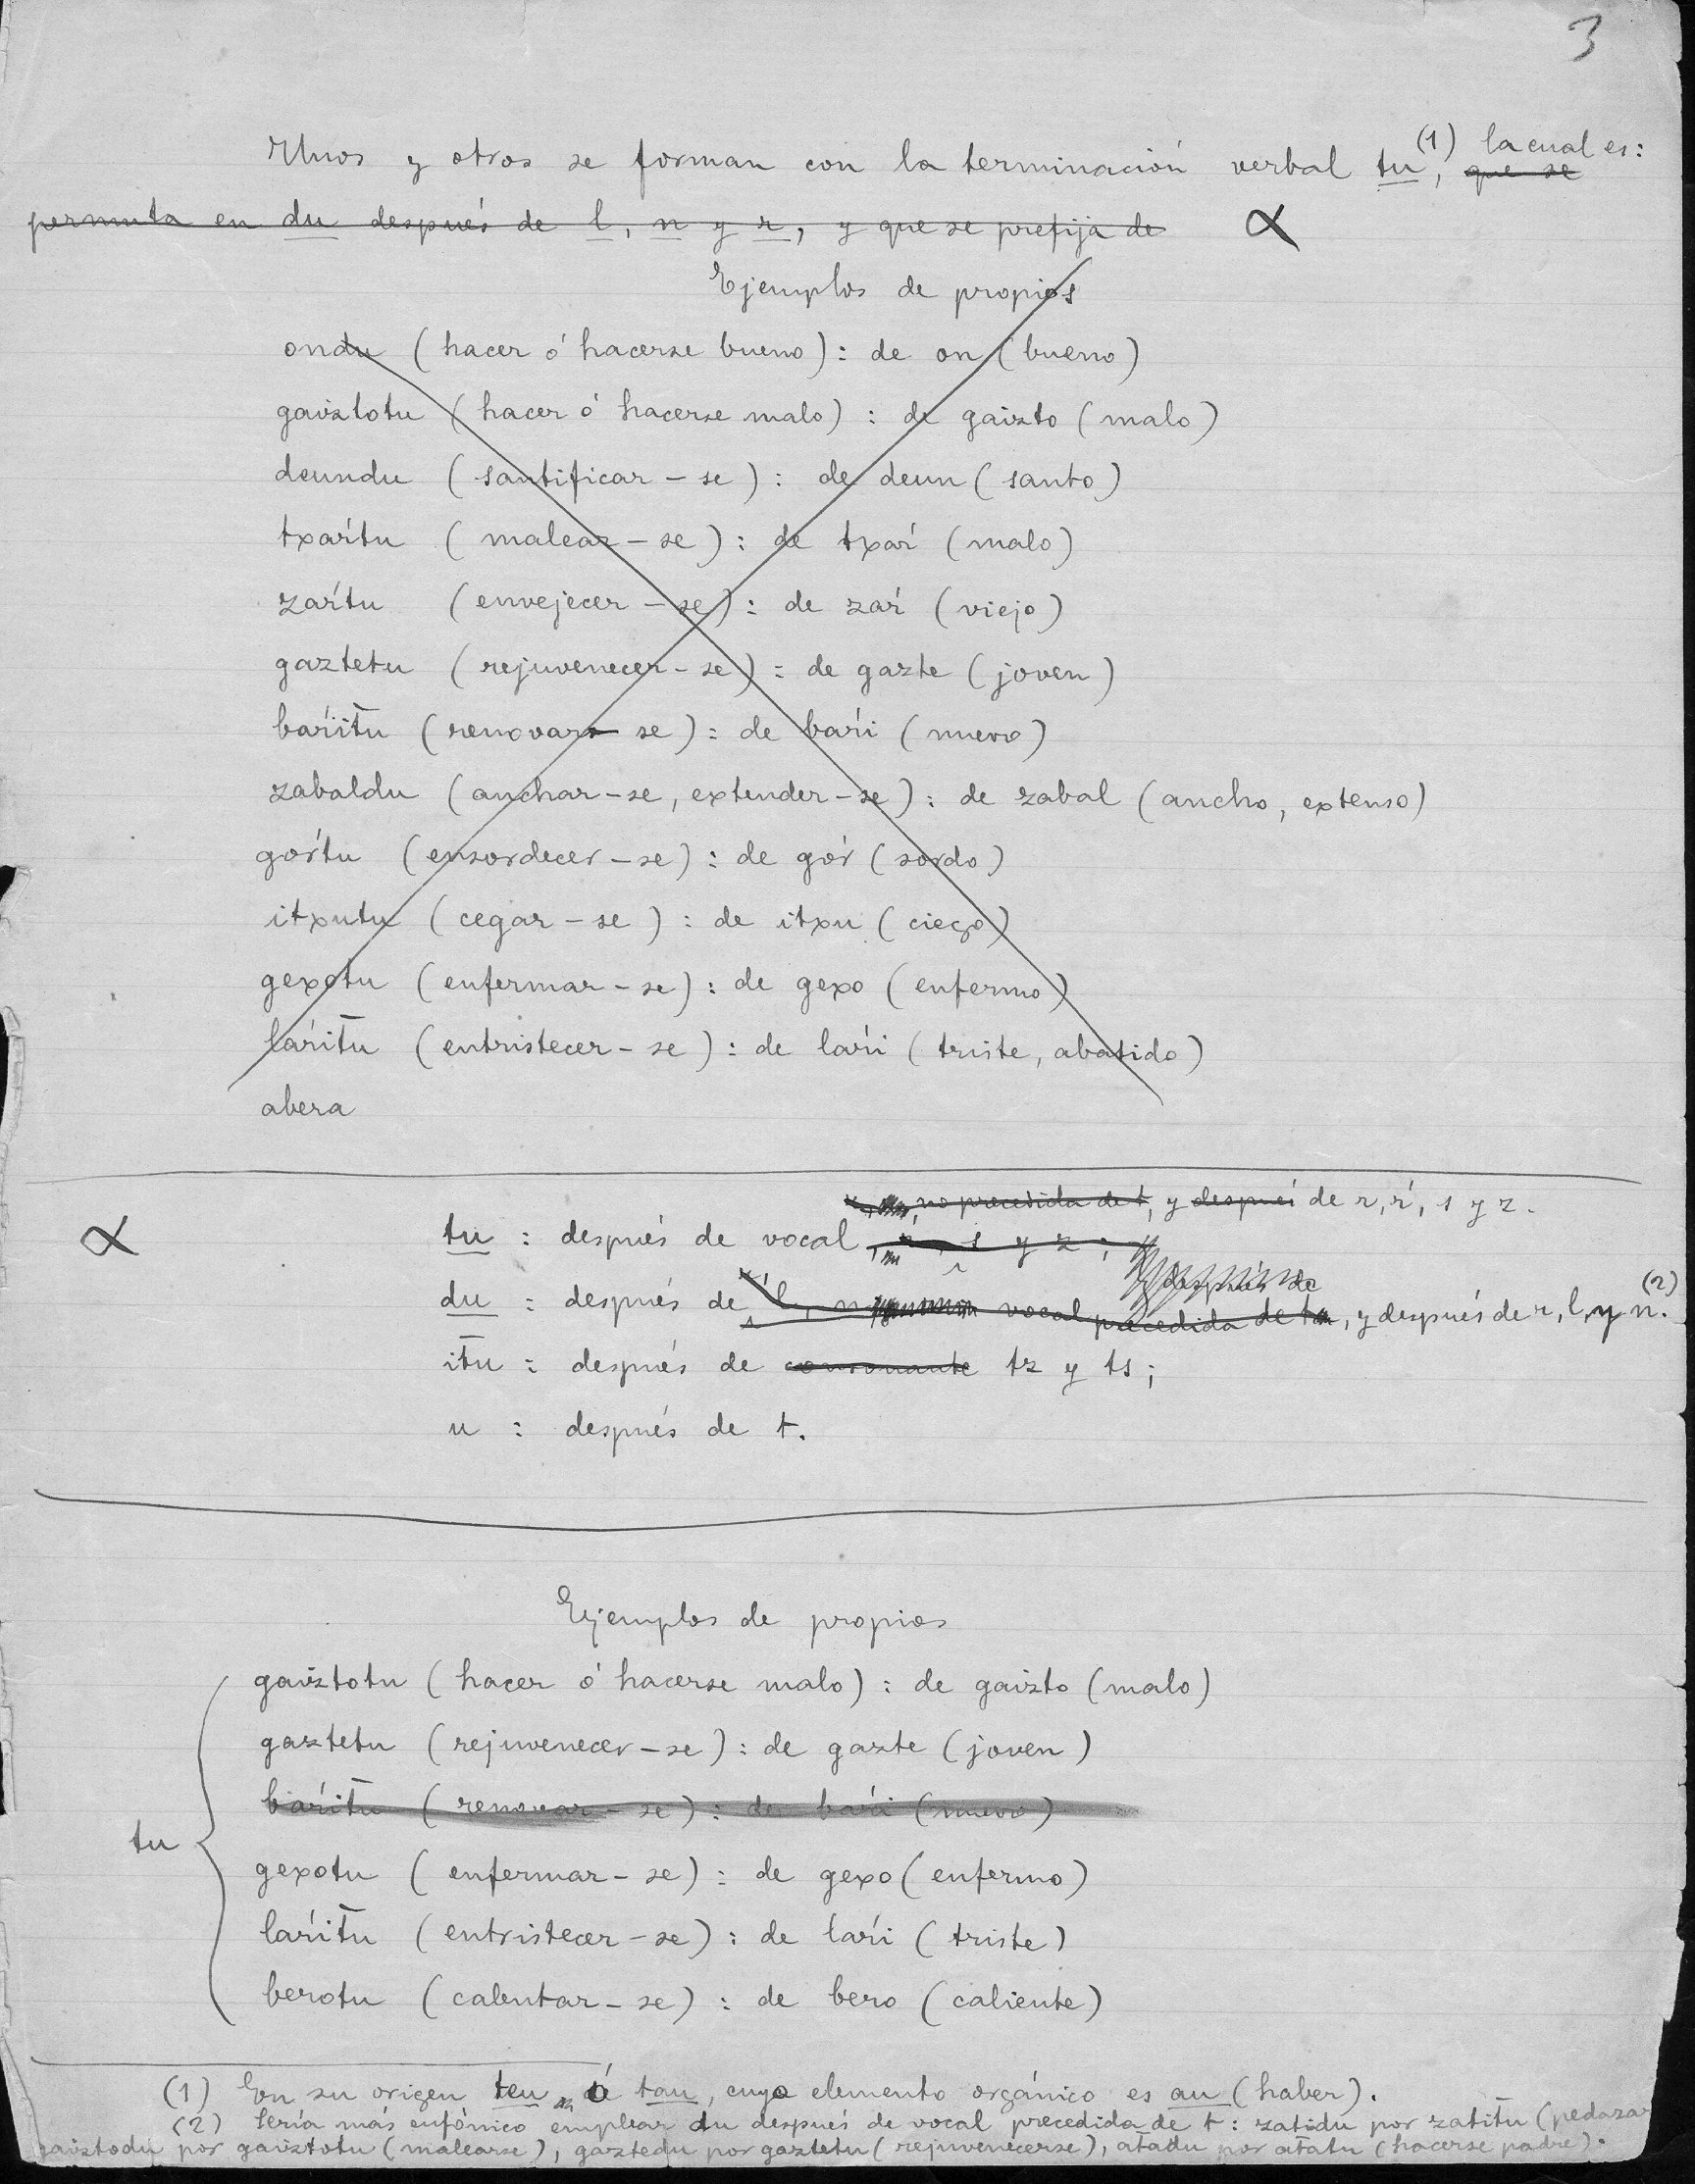 3
Unos y otros se forman con la terminación verbal tu, (1) que se la cual es:
permuta en du después de l, n y r, y que se prefija de α
Ejemplos de propios
ondu (hacer ó hacerse bueno): de on (bueno)
gaiztotu (hacer ó hacerse malo): de gaizto (malo)
deundu (santificar-se): de deun (santo)
txaŕtu (malear-se): de txaŕ (malo)
zaŕtu (envejecer-se): de zaŕ (viejo)
gaztetu (rejuvenecer-se): de gazte (joven)
baŕit̄u (renovar-se): de baŕi (nuevo)
zabaldu (anchar-se, extender-se): de zabal (ancho, extenso)
goŕtu (ensordecer-se): de goŕ (sordo)
itxutu (cegar-se): de itxu (ciego)
gexotu (enfermar-se): de gexo (enfermo)
laŕit̄u (entristecer-se): de laŕi (triste, abatido)
abera
no precedida de t, y después de r, ŕ, s y z.
α tu: después de vocal, s y z;
después de
du: después de l, n vocal precedida de t, y después de r, l, y n. (2)
it̄u: después de consonante tz y ts;
u: después de t.
Ejemplos de propios
gaiztotu (hacer ó hacerse malo): de gaizto (malo)
gaztetu (rejuvenecer-se): de gazte (joven)
baŕit̄u (renovar-se): de baŕi (nuevo)
tu
gexotu (enfermar-se): de gexo (enfermo)
laŕit̄u (entristecer-se): de laŕi (triste)
berotu (calentar-se): de bero (caliente)
(1) En su origen teu ó tau, cuyo elemento orgánico es au (haber).
(2) Sería más eufónico emplear du después de vocal precedida de t: zatidu por zatit̄u (pedazar
gaiztodu por gaiztotu (malearse), gaztedu por gaztetu (rejuvenecerse), at̄adu por at̄atu (hacerse padre).